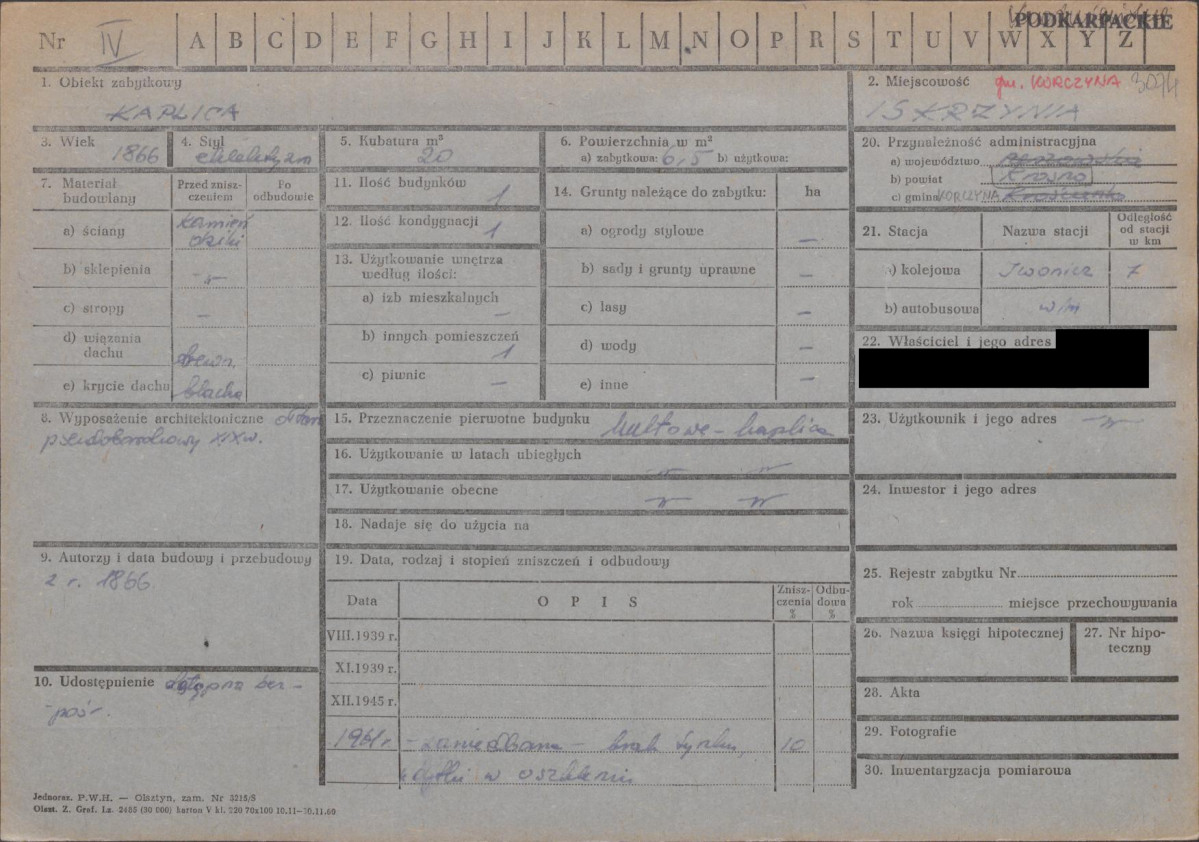 PODKARPACKIE
Nr IV A B C D E F G H I J K L M N O P R S T U V W X Y Z
1. Obiekt zabytkowy
KAPLICA
2. Miejscowość gm. KORCZYNA 3074
ISKRZYNIA
3. Wiek
1866
4. Styl
5. Kubatura m³
20
6. Powierzchnia w m²
a) zabytkowa: 6,5 b) użytkowa:
20. Przynależność administracyjna
a) województwo
b) powiat Krosno
c) gmina KORCZYNA
7. Materiał budowlany
Przed zniszczeniem
Po odbudowie
a) ściany kamień
dziki
b) sklepienia
c) stropy –
d) wiązania dachu drewn.
e) krycie dachu blacha
11. Ilość budynków 1
12. Ilość kondygnacji 1
13. Użytkowanie wnętrza według ilości:
a) izb mieszkalnych –
b) innych pomieszczeń 1
c) piwnic –
14. Grunty należące do zabytku: ha
a) ogrody stylowe –
b) sady i grunty uprawne –
c) lasy –
d) wody –
e) inne –
21. Stacja Nazwa stacji Odległość od stacji w km
a) kolejowa Iwonicz 7
b) autobusowa w/m
22. Właściciel i jego adres
8. Wyposażenie architektoniczne ołtarz
pseudobarokowy XIX w.
15. Przeznaczenie pierwotne budynku kultowe – kaplica
16. Użytkowanie w latach ubiegłych
17. Użytkowanie obecne
18. Nadaje się do użycia na
23. Użytkownik i jego adres
24. Inwestor i jego adres
9. Autorzy i data budowy i przebudowy
z r. 1866
19. Data, rodzaj i stopień zniszczeń i odbudowy
Data OPIS Zniszczenia % Odbudowa %
VIII.1939 r.
XI.1939 r.
XII.1945 r.
1961 r – zaniedbana – brak tynku, 10
25. Rejestr zabytku Nr
rok miejsce przechowywania
26. Nazwa księgi hipotecznej
27. Nr hipoteczny
10. Udostępnienie dostępna bez-
pośr.
28. Akta
29. Fotografie
30. Inwentaryzacja pomiarowa
Jednoraz. P.W.H. — Olsztyn, zam. Nr 3215/S
Olszt. Z. Graf. Lz. 2485 (30 000) karton V kl. 220 70x100 10.11—30.11.60